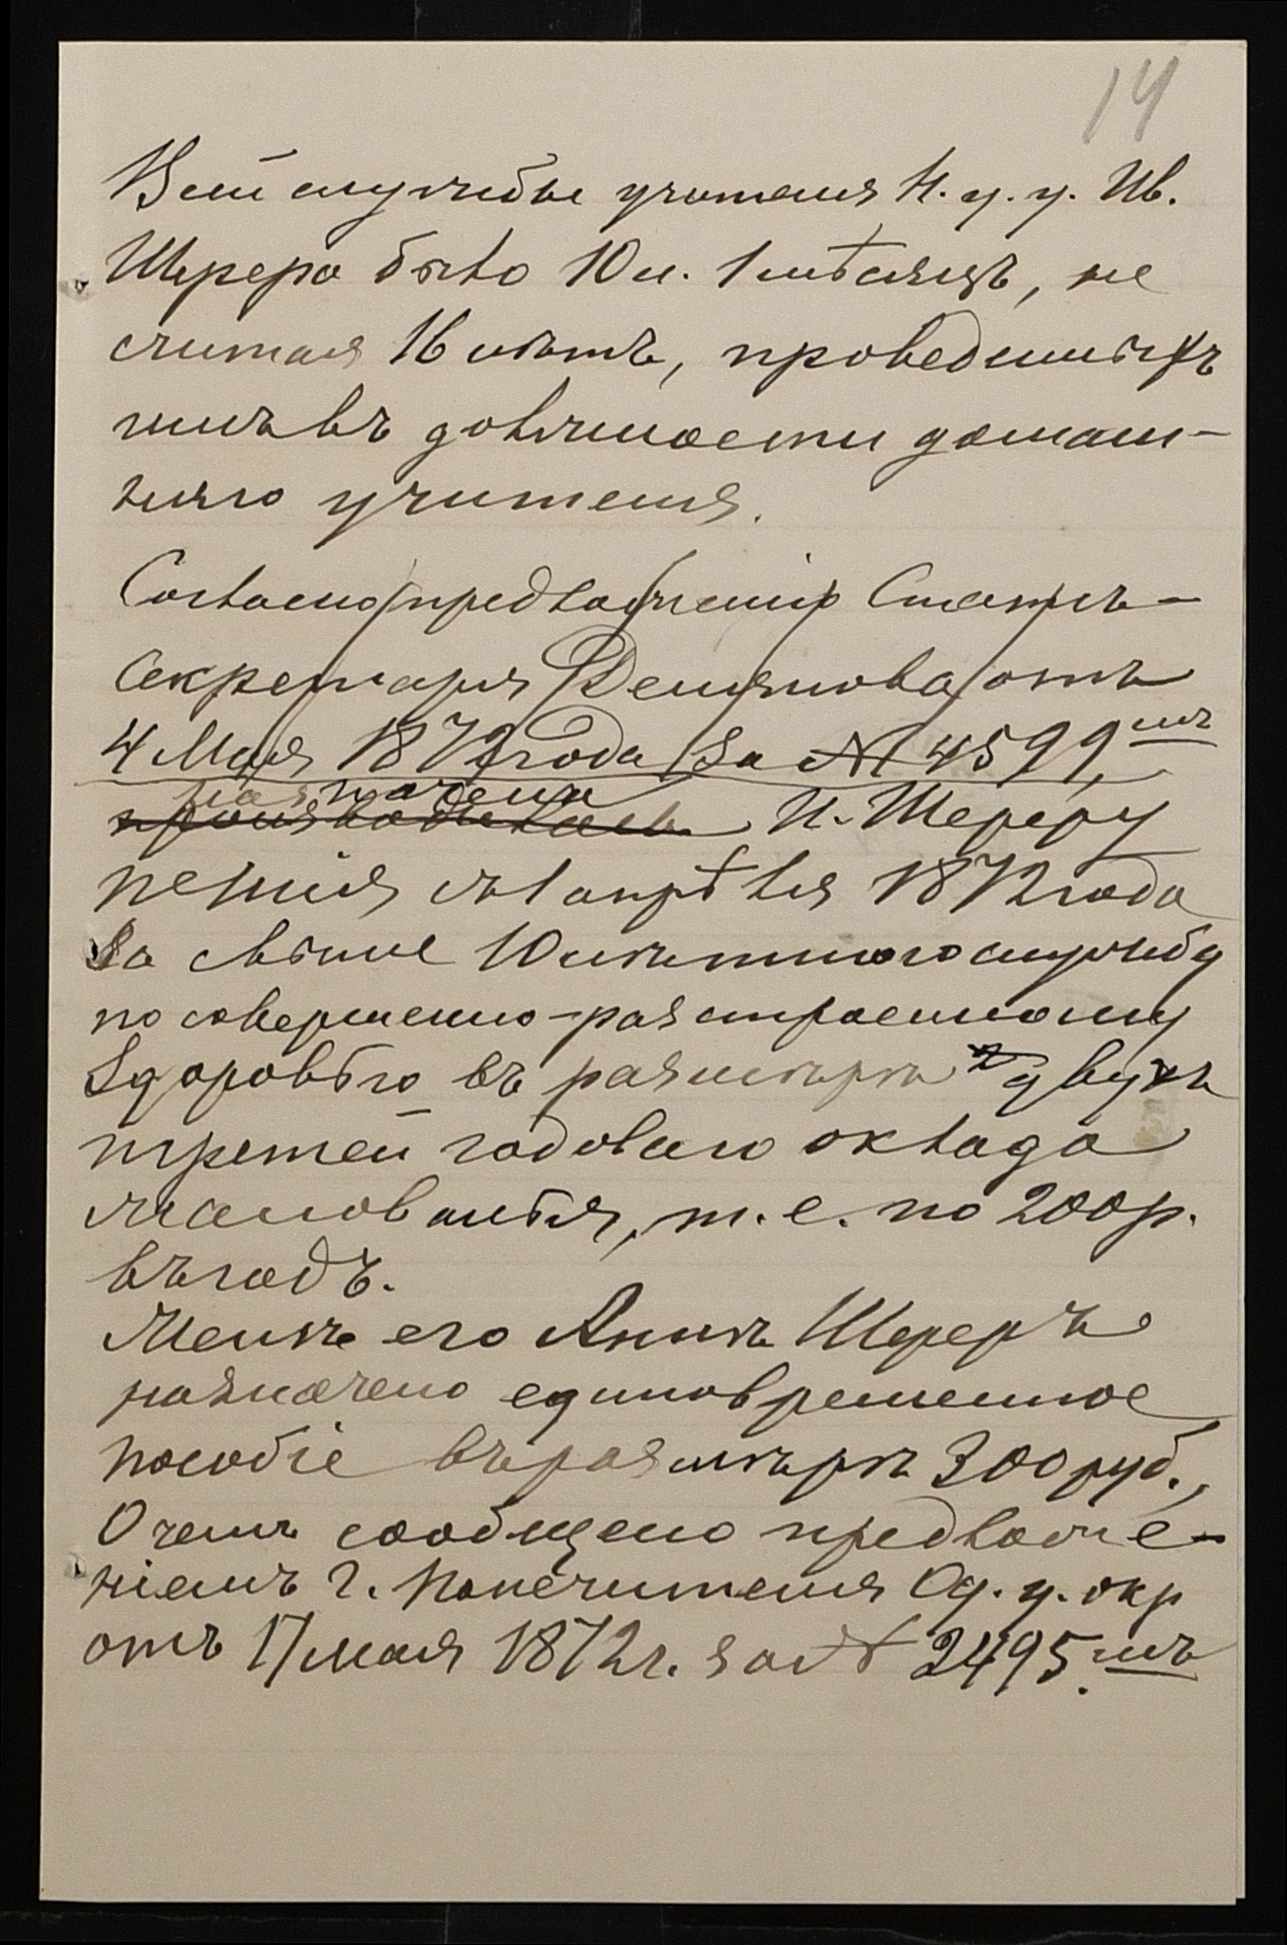 14
Всей службы учителя Н. у. у. Ив.
Шерера было 10 л. 1 мѣсяцъ, не
считая 16 лѣтъ, проведенныхъ
имъ въ должности домаш-
няго учителя.
Согласно предложенію Статсъ-
Секретаря Делянова отъ
4 Мая 1872 года за № 4599,мъ
назначена
производилась И. Шереру
пенсія съ 1 апрѣля 1872 года
за свыше 10 лѣтнюю службу
по совершенно-разстроенному
здоровью въ размѣрѣ двухъ
третей годоваго оклада
жалованья, т. е. по 200 р.
въ годъ.
Женѣ его Аннѣ Шереръ
назначено единовременное
пособіе въ размѣрѣ 300 руб.,
О чемъ сообщено предложе-
ніемъ г. Попечителя Од. у. окр
отъ 17 мая 1872 г. за № 2495.мъ